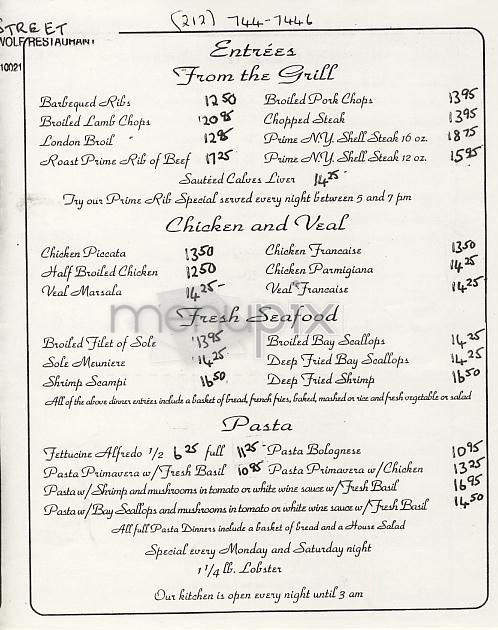 (212) 744-7446
STREET
WOLF/RESTAURANT
10021
Entrées
From the Grill
Barbequed Ribs 12 50 Broiled Pork Chops 13 95
Broiled Lamb Chops 20 95 Chopped Steak 13 95
London Broil 12 95 Prime N.Y. Shell Steak 16 oz. 18 75
Roast Prime Rib of Beef 17 25 Prime N.Y. Shell Steak 12 oz. 15 95
Sautéed Calves Liver 14 25
Try our Prime Rib Special served every night between 5 and 7 pm
Chicken and Veal
Chicken Piccata 13 50 Chicken Francaise 13 50
Half Broiled Chicken 12 50 Chicken Parmigiana 14 25
Veal Marsala 14 25 Veal Francaise 14 25
menupix
Fresh Seafood
Broiled Filet of Sole 13 95 Broiled Bay Scallops 14 25
Sole Meuniere 14 25 Deep Fried Bay Scallops 14 25
Shrimp Scampi 16 50 Deep Fried Shrimp 16 50
All of the above dinner entrées include a basket of bread, french fries, baked, mashed or rice and fresh vegetable or salad
Pasta
Fettucine Alfredo 1/2 6 25 full 11 25 Pasta Bolognese 10 95
Pasta Primavera w/Fresh Basil 10 95 Pasta Primavera w/Chicken 13 25
Pasta w/Shrimp and mushrooms in tomato or white wine sauce w/Fresh Basil 16 95
Pasta w/Bay Scallops and mushrooms in tomato or white wine sauce w/Fresh Basil 14 50
All full Pasta Dinners include a basket of bread and a House Salad
Special every Monday and Saturday night
1 1/4 lb. Lobster
Our kitchen is open every night until 3 am